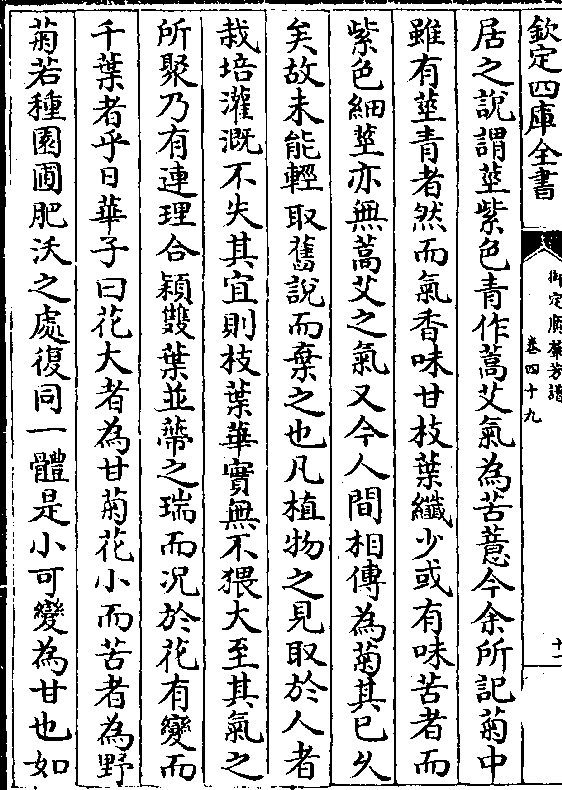 欽定四庫全書
御定廣羣芳譜
卷四十九
十一
居之說謂莖紫色青作蒿艾氣為苦薏今余所記菊中
雖有莖青者然而氣香味甘枝葉纖少或有味苦者而
紫色細莖亦無蒿艾之氣又今人間相傳為菊其已久
矣故未能輕取舊說而棄之也凡植物之見取於人者
栽培灌溉不失其宜則枝葉華實無不猥大至其氣之
所聚乃有連理合穎雙葉並蔕之瑞而况於花有變而
千葉者乎日華子曰花大者為甘菊花小而苦者為野
菊若種園圃肥沃之處復同一體是小可變為甘也如